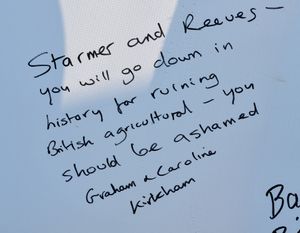 Starmer and Reeves –
you will go down in
history for ruining
British agricultural – you
should be ashamed
Graham & Caroline
Kirkham
Ba